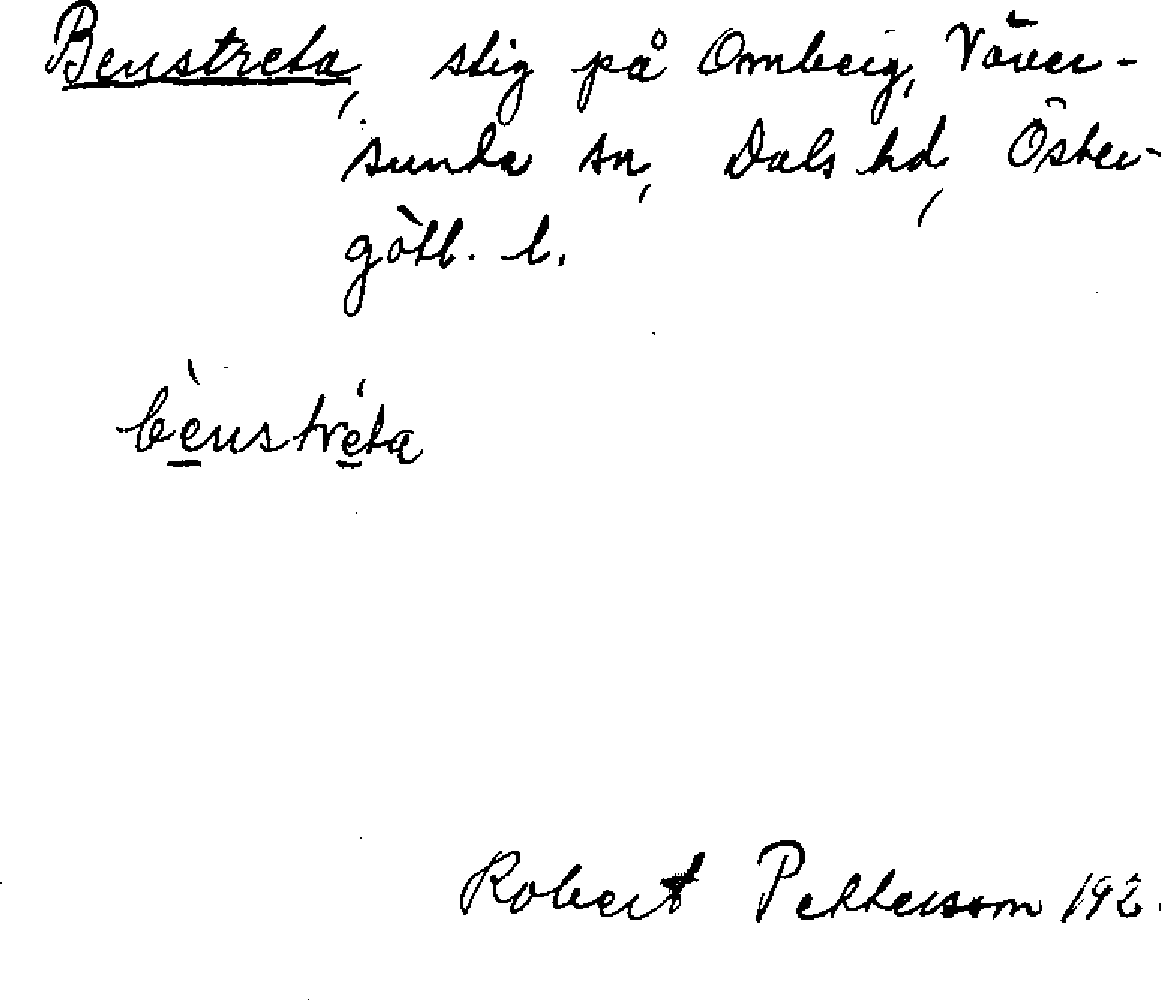 Benstreta, stig på Omberg, Väver-
sunda sn, Dals hd, Öster-
götl. l.
bènstréta
Robert Pettersson 192.